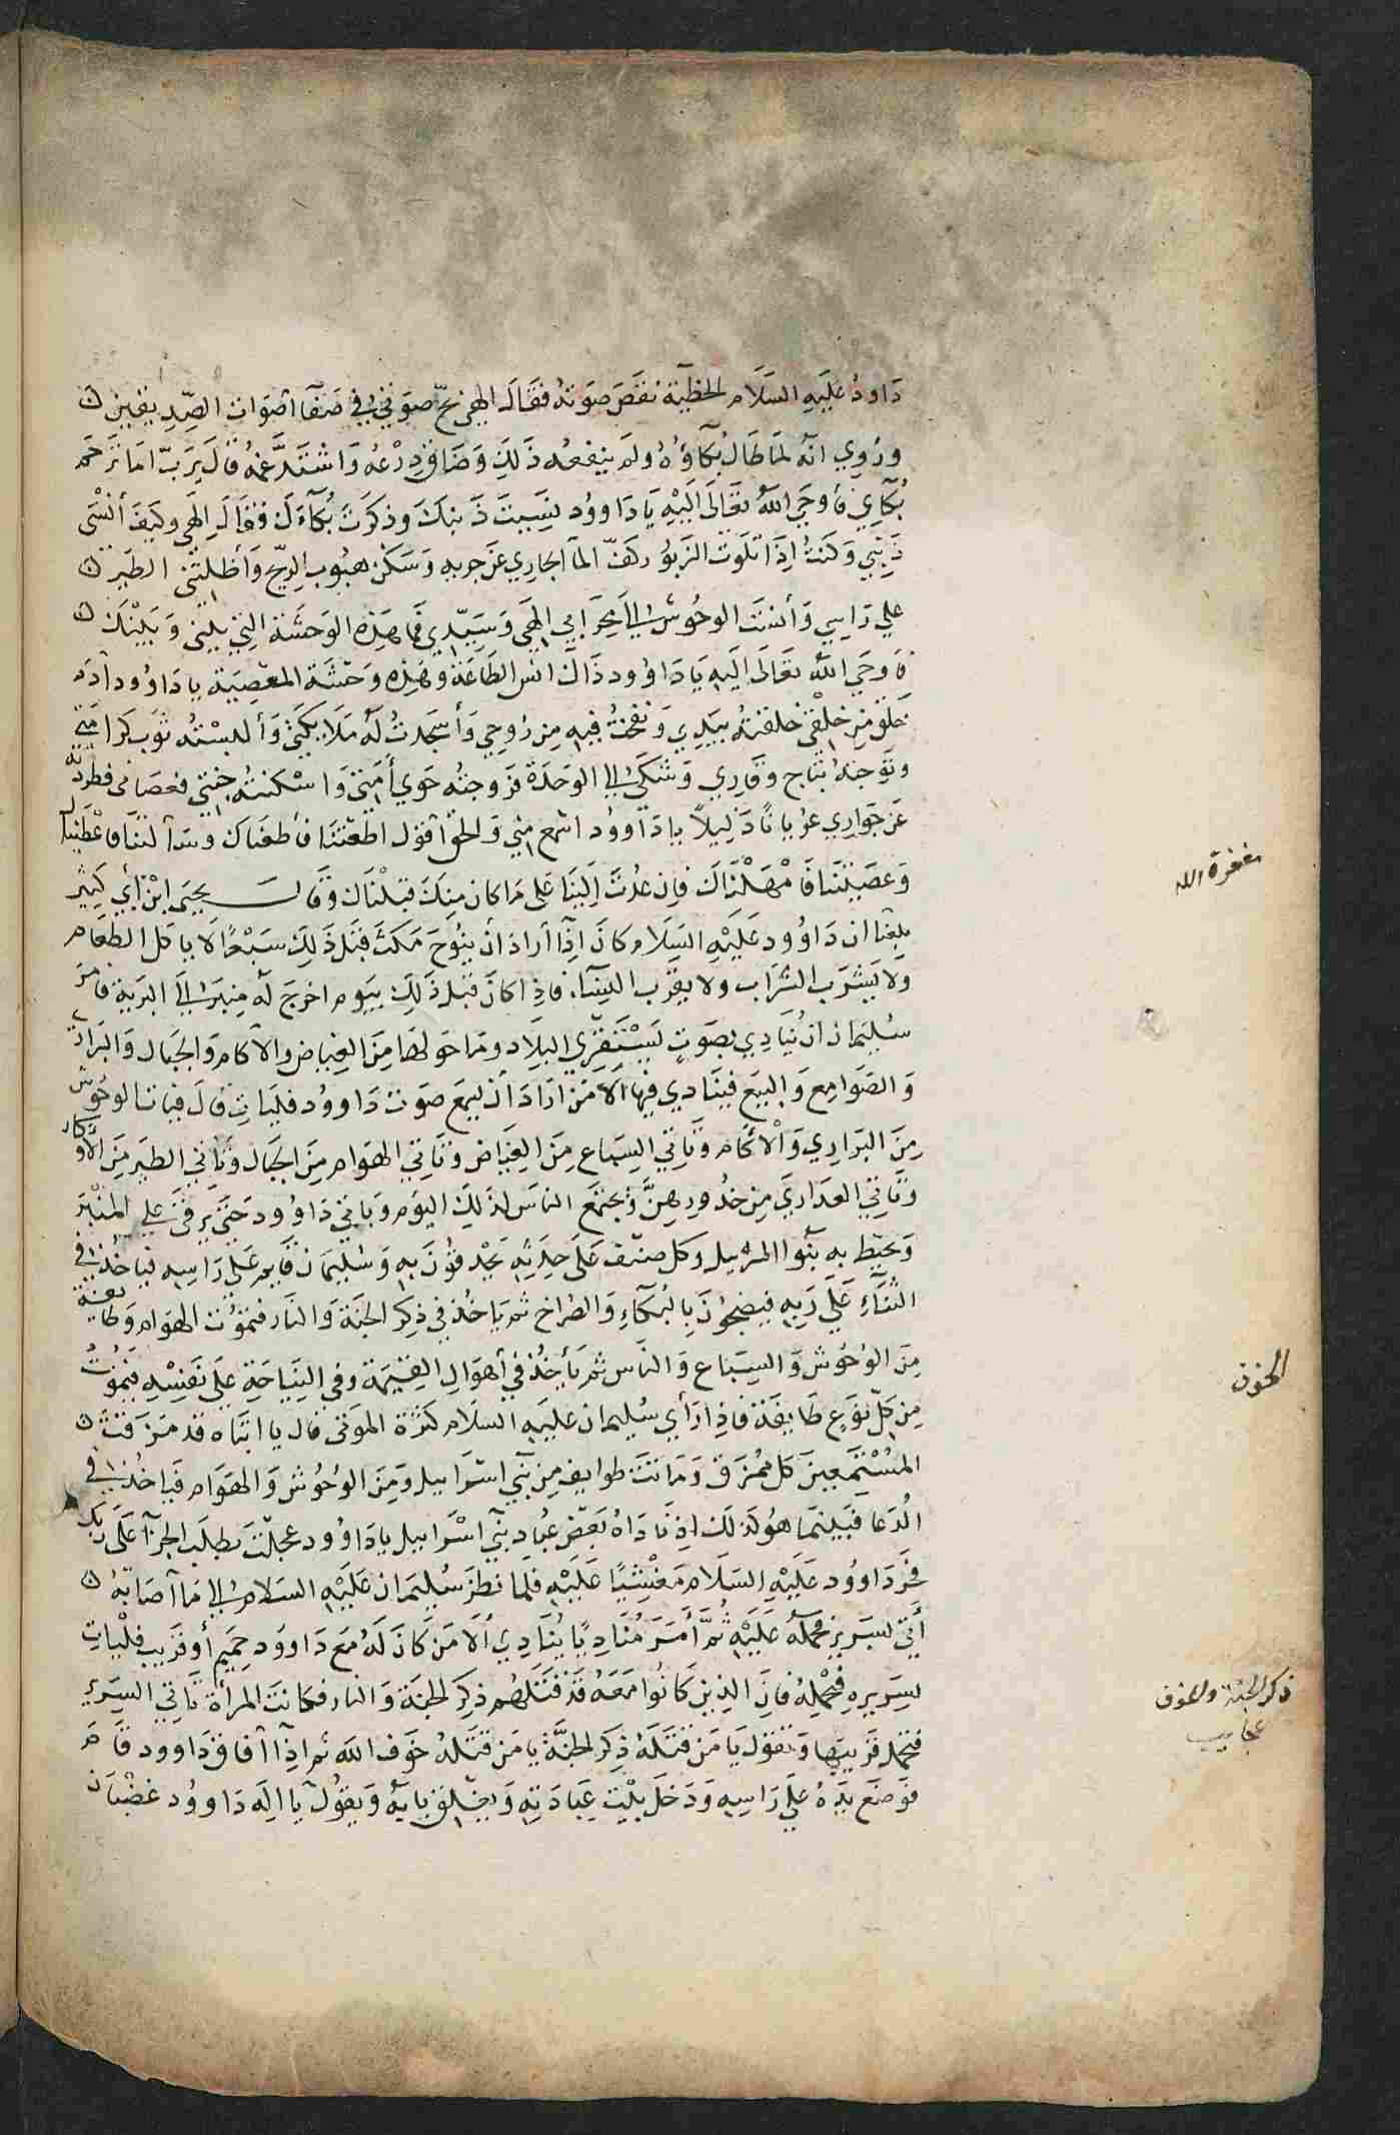 دَاودُ عَليَهِ السَلَام الخطيّة نقَصَ صَوتهُ فقَالَ الهي بحّ صوَتي في صَفآ أصْوَات الصِّدِيقين
ورُوي انهُ لمَا طَالَ بُكآؤهُ ولمَ ينفعه ذَلِكَ وَضَاقَ دِرْعُه وَاشتَدَّ غمهُ قالَ يَرَبّ امَا ترَحَم
بُكآيِ فأوحَي اللهُ تعَالَى اليَهِ يَا دَاووُد نسَيِتَ ذَنبكَ وذكرَتَ بُكآءَكَ فقاَلَ الهَي وكيَفَ أنسْى
ذَنِبي وَكنتُ اِذَا تلَوت الزَبوُر كفَّ المآ الجاري عَن جريه وَسَكنَ هبُوب الرِيّح وَأظلتني الطيَر
علي رَاسِي وَأنستَ الوحُوش الي محِرَابي الهَي وَسَيِّدي فَما هَذِهِ الوَحشَة التِي بَيني وَبَيْنكَ
فأوحَي اللهُ تعَالَى اِليَهِ يَا دَاوُود ذَاكَ انس الطَاعَة وَهَذِهِ وَحشَة المعَصِيَة يا دَاوُود آدَم
خلَق مِن خلْقي خلَقتهُ بيَدِي وَنفخَتُ فيهِ مِن رُوحي وَأسجَدتُ لهُ مَلَايكتيَ وَألبَسْتُه ثوَب كرَامتي
وتوَجتهُ بتاجِ وقَارِي وَشكى الي الوَحَدة فزَوجتُه حَوي أمَتي وَاسْكنتهُ جَنتي فعصَاني فطرَدتّه
عَن جوَارِي عرُيانًا ذَليلاً يا دَاووُد اسْمع مني وَالحقّ أقوَل اطعَتنَا فأطعَناكَ وسَألتنَا فأعْطيَناكَ
وَعَصَيْتنَا فأمْهَلْنَاكَ فإن عدُتَ إليَنَا عَلى مَا كان مِنكَ قبَلْنَاك وَقَالَ يحيَى ابْن أبي كِثير
بلغنا ان دَاوُود عَليَهِ السَلَام كانَ إذَا أرَادَ أن ينوُحَ مَكثَ قبَل ذَلِكَ سَبْعًا لَا ياكل الطعَام
ولا يَشرَب الشرَاب ولا يقرَب النِسَآ، فإذِا كانَ قبَل ذَلِكَ بيَوم اخرجَ لهُ مِنبَر الي البَرية فأمَر
سُليَمان ان يُنَادِي بصَوتٍ يَسْتَقري البلاِد ومَا حَولهَا مِن الغِياض والآكام وَالجبَال وَالبرَاري
وَالصَوَامِع وَالبِيَع فينَادي فيها ألَا مَن ارَادَ أن يسمَع صَوت دَاووُد فليَاتِ قالَ فيأتي الوحُوش
مِنَ البرَارِي وَالأكام وتأتِي السِباع مِنَ الغِيَاض وتأتي الهوام مِنَ الجَبال وتأتي الطيَر مِنَ الأوكار
وتأتي العذَاريَ مِن خدُورهِنَّ ويجتمَع الناسَ لذَلِكَ اليوَم وَيأتي دَاوُود حَتي يرقى علي المنْبَر
وَيحيط بهِ بنوا اسرئيل وكل صنَف علَى حِدَتهِ يحْدقوُنَ بهِ وَسُليمَان قايم عَلي رَاسِهِ فيَاخُذ في
الثنَآءِ عَلي رَبهِ فيضِجوُنَ بالبُكآءِ وَالصُراخ ثم يَاخُذ في ذِكرَ الجنَة وَالنار فتموُت الهوَام وطايفة
مِنَ الوُحُوش وَالسِبَاع وَالناس ثم يَأخُذ في أهوَالِ القِيمَة وفي النِيَاحَةِ علَي نفسْهِ فيَموُتُ
مِن كلّ نوَع طَايفة فاذِا رَأي سُليمان علَيهِ السلَام كثرَة الموتى قال يا ابتاه قد مَزقتَ
المسُتمعِينَ كل ممُزَق وَمَاتَت طوايف مِن بَني اسْرَاييل وَمِنَ الوُحُوش وَالهوَام فيَاخُذ في
الدُعا فبَينمَا هوُ كذلَكَ اذِ نَادَاهُ بعَض عُبادِ بَني اسْرَاييل يا دَاوُود عجلَتَ بطلَب الجزآ علَى رَبكَ
فخرَ دَاووُد عَليَهِ السَلَام مغشِيًا عَليَهِ فلما نظرَ سُليَمان عَليَهِ السَلامُ الي مَا أصَابَهُ
أَتي بسَرِير فحمَلهُ عَليَهِ ثُمَّ أَمَرَ مُنَاديًا يُنَادِي ألَا مَن كانَ لَهُ مَع دَاووُد حمِيَم أو قرَيب فليْاتِ
بسِرَيرِهِ فيْحمِلهُ فإنَ الذِينَ كانوُا مَعَهُ قدَ قتَلهمُ ذِكر الجنَة وَالنار فكانتَ المرأة تأتي السِرَيرِ
فتحمل قرَيبهَا وَتقوُل يَا مَن قتَلهُ ذِكر الجنَّة يا مَن قتَلهُ خوَف اللهِ ثم اِذَا أفاقَ دَاووُد قامَ
فوَضَعَ يَدَهُ عَلي رَاسِهِ وَدَخلَ بيْت عِبَادَتِهِ وَيغلق بابَهُ وَيقوُلُ يا الِهَ دَاووُد غضْبَان
مغفرة الله
الخوف
ذكر الجنة والخوف
عجايب